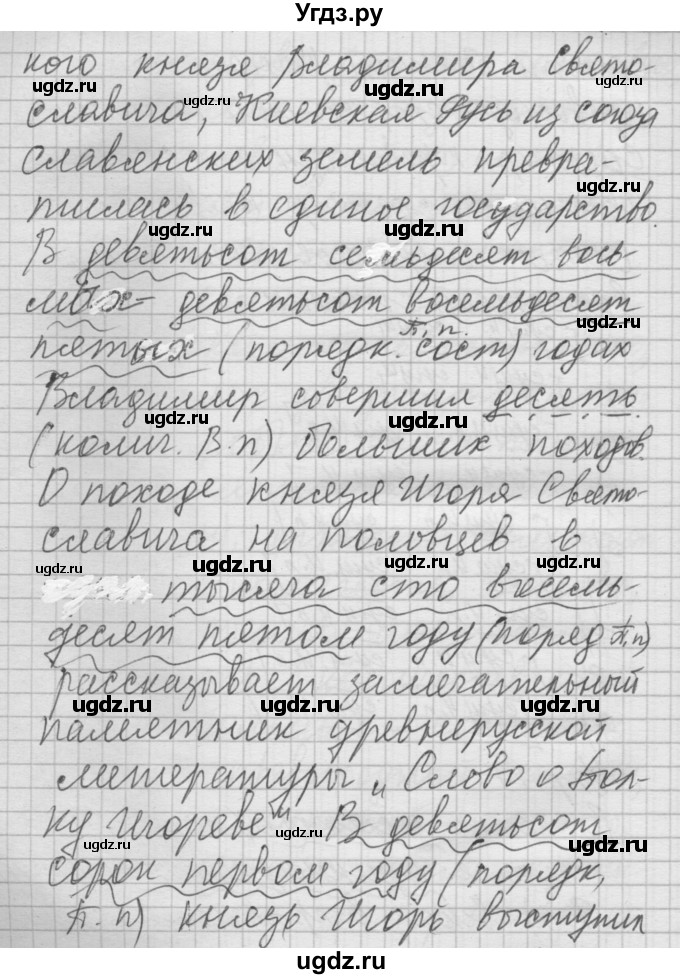 Угдз.ру
кого князя Владимира Свято-
славича, Киевская Русь из союза
славянских земель превра-
тилась в единое государство.
В девятьсот семьдесят вось-
мых- девятьсот восемьдесят
пятых (порядк. сост П, п.) годах
Владимир совершил десять
(колич. В.п) больших походов.
О походе князя Игоря Свято-
славича на половцев в
тысяча сто восемь-
десят пятом году (поряд П,п)
рассказывает замечательный
памятник древнерусской
литературы "Слово о пол-
ку Игореве". В девятьсот
сорок первом году (порядк,
П.п) князь Игорь выступил
ugdz.ru